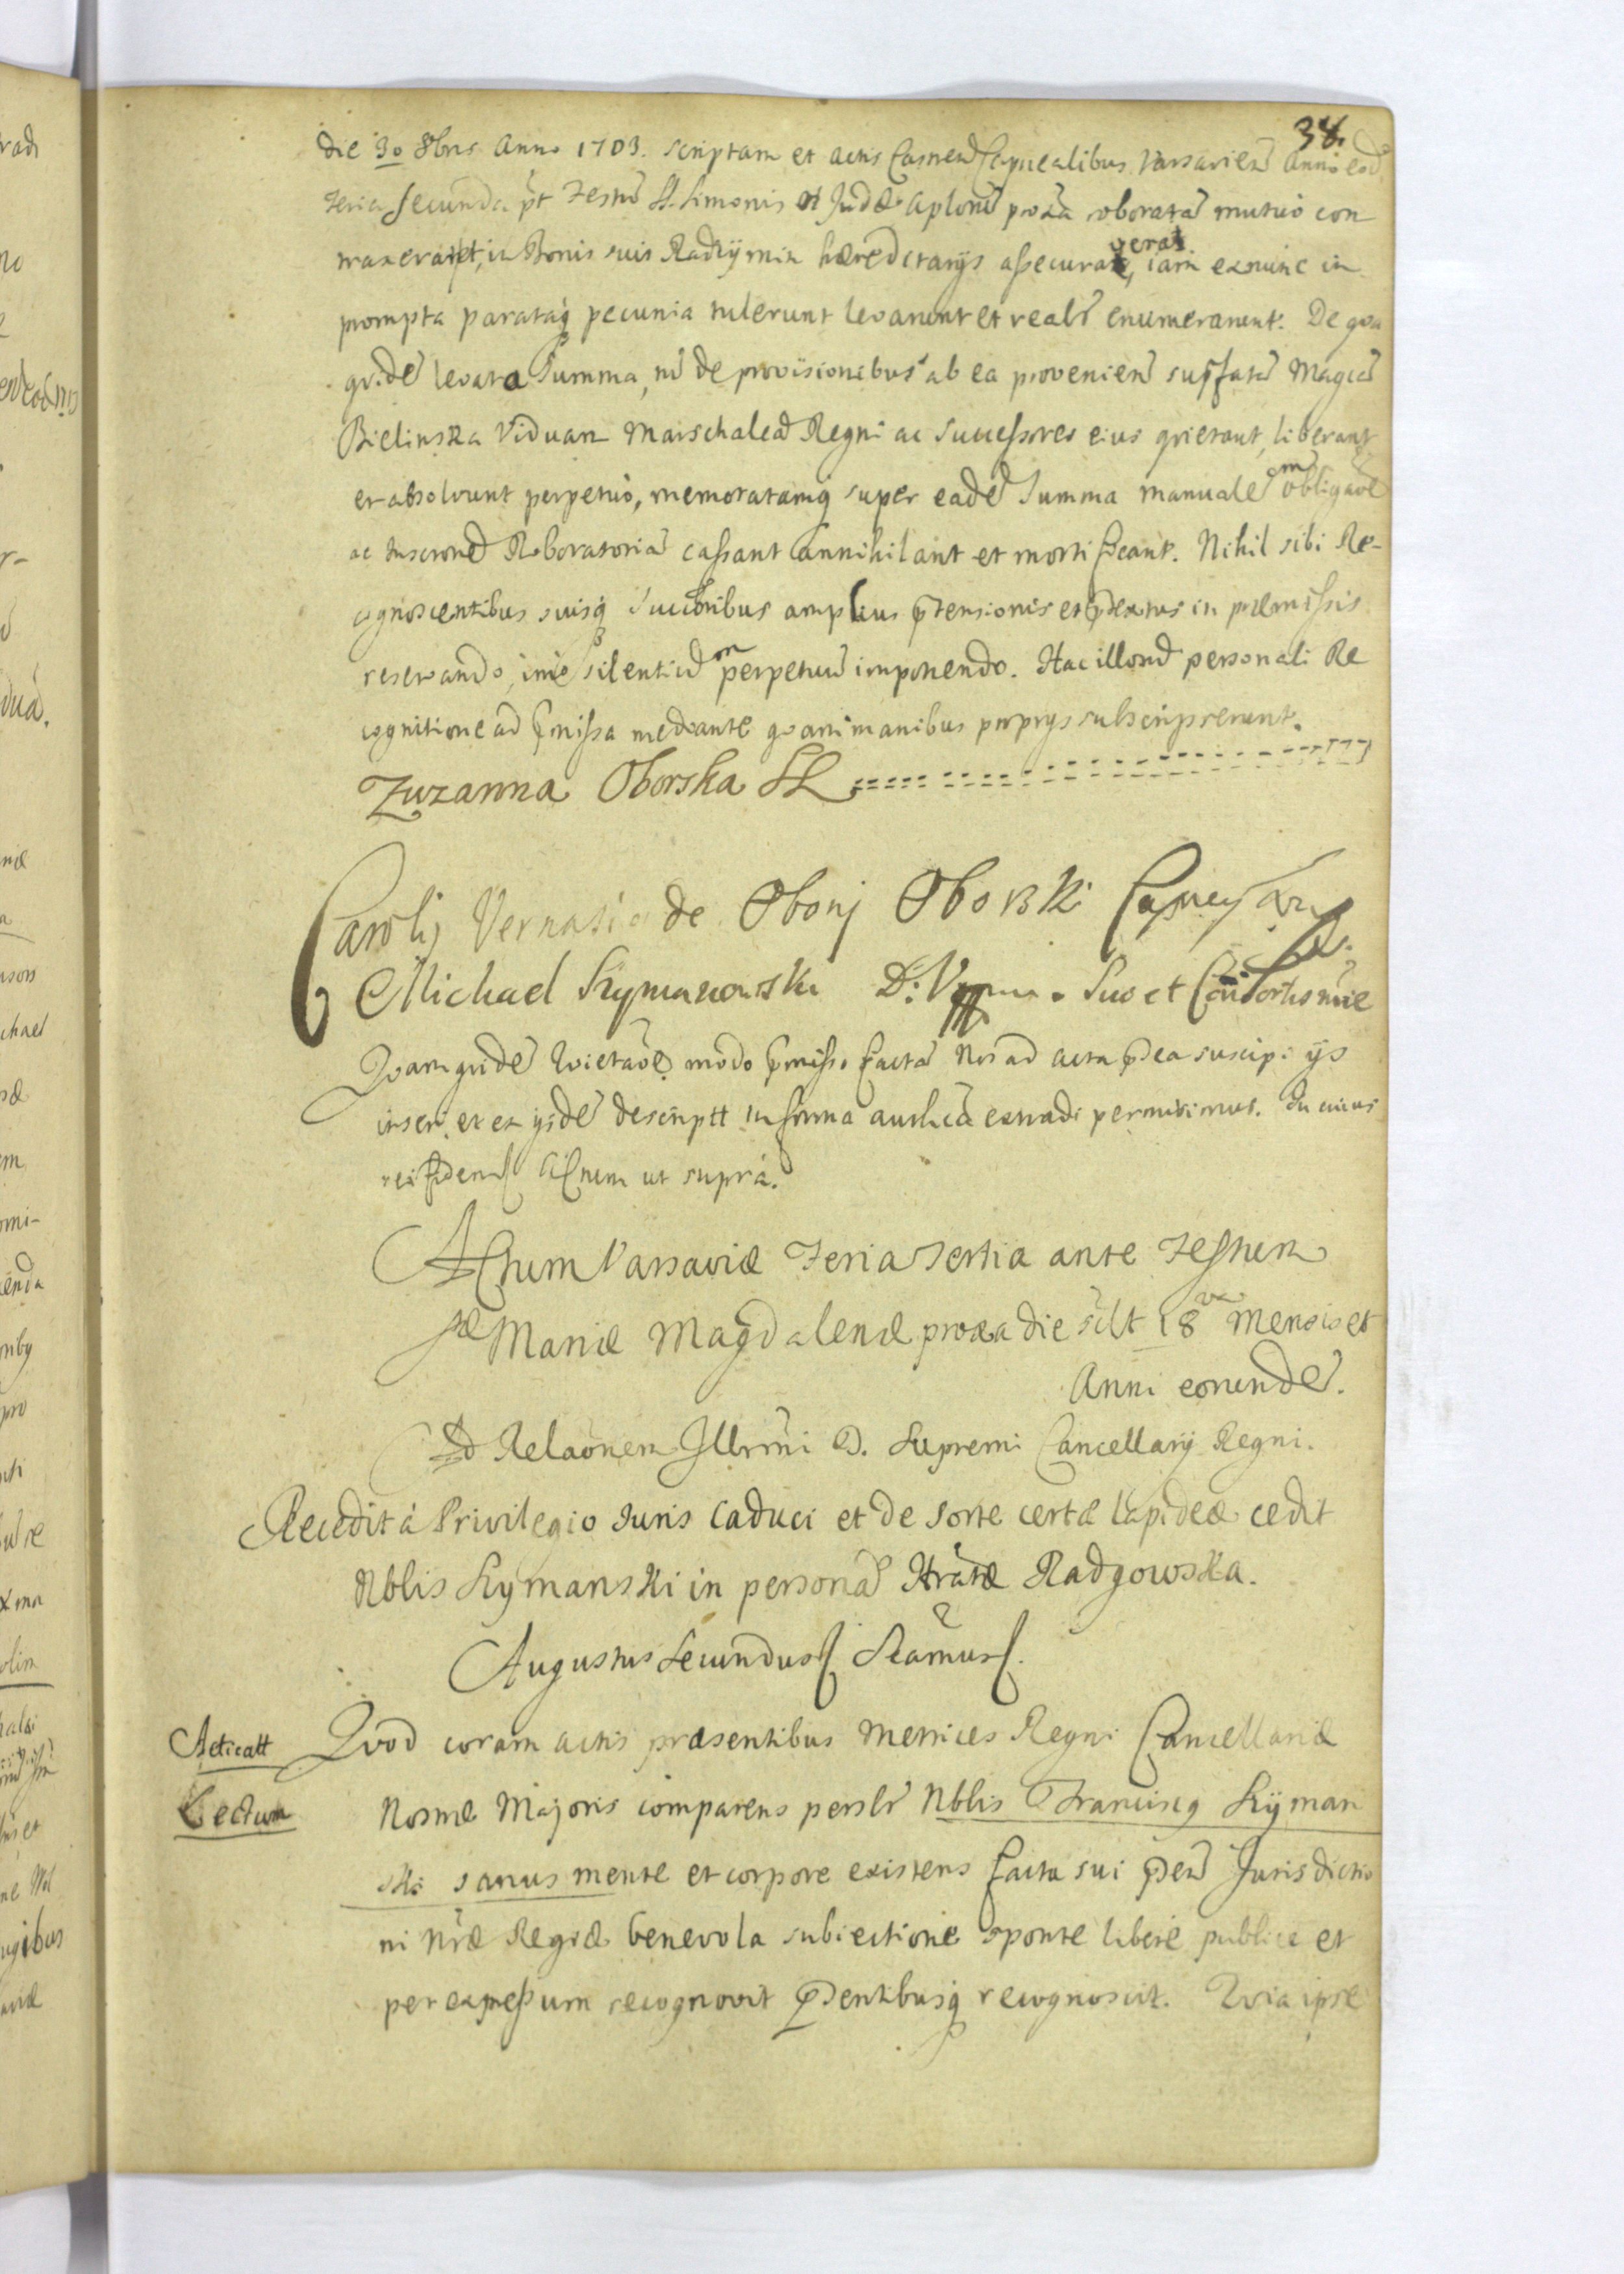 34
die 30 8bris Anno 1703. scriptam et actis Castren Capnealibus Varsavien Anni eod
Feria secunda pt Festũ SS. Simonis et Judæ Aplorũ proxa roboratã mutuo con
traxerat, in Bonis suis Radzÿmin hæreditarÿs assecuraverat, iam exnunc in
prompta parataq pecunia tulerunt levarunt et realr enumerarunt. De qva
qvidẽ levata summa, nẽ de provisionibus ab ea provenien supfatã Magcã
Bielinska Viduam Marschalcã Regni ac Successores eius qvietant, liberant
et absolvunt perpetuò, memoratamq super eadẽ Summa manualẽ obligaõẽm
ac Inscronẽ Roboratoriã cassant annihilant et mortificant. Nihil sibi Re-
cognoscentibus suisq Succoribus amplius prtensionis et prtextus in præmissis
reservando, imo silentiũ perpetuũm imponendo. Hac illorũ personali Re
cognitione ad prmissa mediante qvam manibus proprÿs subscripserunt.
Zuzanna Oborska SL
Carolÿ de Oborÿ Oborski
Michael Szymanowski Suo et Consortis mẽ
Qvam quidẽ Qvietaõẽ modo prmisso factã Nos ad acta prsea suscipi ÿs
inseri et ex ÿsdẽ descriptt in forma authcã extradi permisimus. In cuius
rei fidem Actum ut suprà.
Actum Varsaviæ Feria Tertia ante Festum
Sæ Mariæ Magdalenæ proxa die sclt 18va Mensis et
Anni eorundẽ.
Ad Relaõnem Illrmi D. Supremi Cancellarÿ Regni.
Recedit à Privilegio Juris Caduci et de sorte certæ lapideæ cedit
Nblis Szymanski in personã Hratæ Radgowska.
Augustus Secundus Seamus.
Acticatt Qvod coram actis præsentibus Metrices Regni Cancellariæ
Lectum Nostræ Majoris comparens perslr Nblis Franciscq Szÿman
ski sanus mente et corpore existens facta sui prsen Jurisdictio
ni Nræ Regiæ benevola subiectione sponte liberè publicè et
per expressum recognovit prsentibusq recognoscit. Qvia ipse